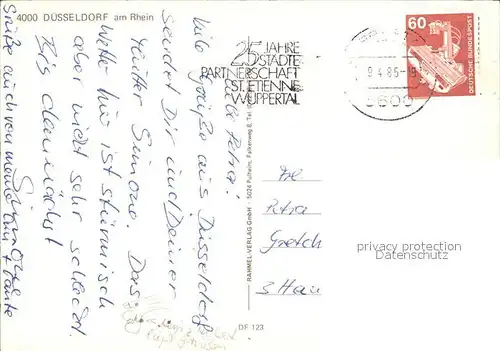 4000 DÜSSELDORF am Rhein
25 JAHRE
STÄDTE
PARTNERSCHAFT
ST. ETIENNE
WUPPERTAL
9.4.85-19
5600
60
DEUTSCHE BUNDESPOST
Liebe Petra!
Viele Grüße aus Düsseldorf
sendet Dir und Deiner
Mutter Simone. Das
Wetter hier ist stürmisch
aber nicht sehr schlecht.
Bis demnächst
Simone
Grüße auch von meiner
Tante
Petra
3 Han
RAHMEL-VERLAG GmbH · 5024 Pulheim, Falkenweg 8, Tel
DF 123
privacy protection
Datenschutz